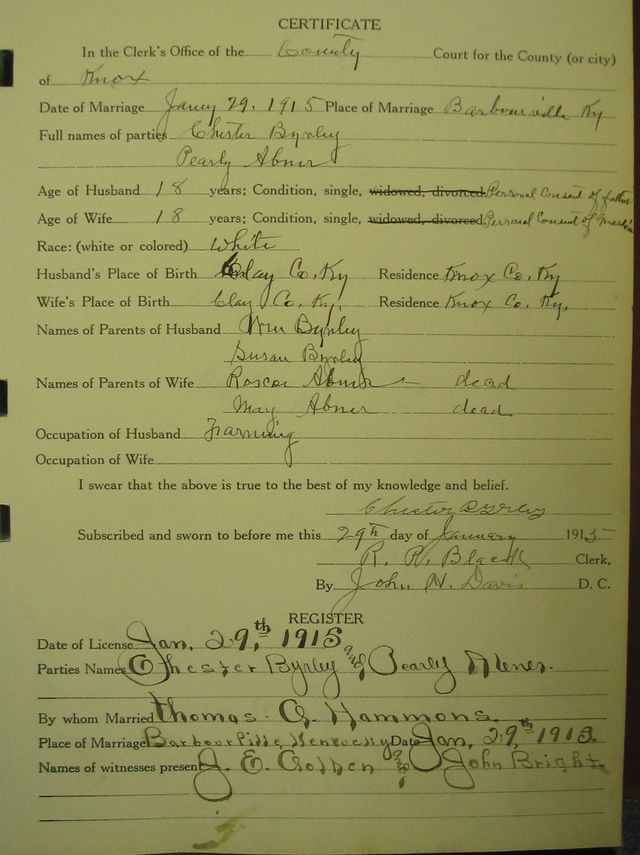 CERTIFICATE
In the Clerk's Office of the County Court for the County (or city)
of Knox
Date of Marriage Jany 29, 1915 Place of Marriage Barbourville Ky
Full names of parties Chister Byrley
Pearly Abner
Age of Husband 18 years; Condition, single, widowed, divorced. Personal Consent of father
Age of Wife 18 years; Condition, single, widowed, divorced. Personal Consent of
Race: (white or colored) White
Husband's Place of Birth Clay Co. Ky Residence Knox Co. Ky
Wife's Place of Birth Clay Co. Ky. Residence Knox Co. Ky.
Names of Parents of Husband Wm Byrley
Susan Byrley
Names of Parents of Wife Roscoe Abner - dead
May Abner dead
Occupation of Husband Farming
Occupation of Wife
I swear that the above is true to the best of my knowledge and belief.
Chester Byrley
Subscribed and sworn to before me this 29th day of January 1915
R. R. Black Clerk,
By John H. Davis D. C.
REGISTER
Date of License Jan, 29,th 1915
Parties Names Chester Byrley and Pearly Abner.
By whom Married Thomas G. Hammons.
Place of Marriage Barbourville, Kentucky Date Jan, 29,th 1915.
Names of witnesses present J. E. Golden and John Bright